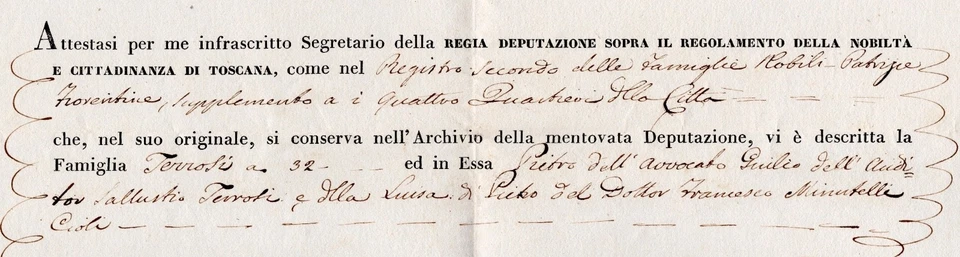 Attestasi per me infrascritto Segretario della REGIA DEPUTAZIONE SOPRA IL REGOLAMENTO DELLA NOBILTÀ
E CITTADINANZA DI TOSCANA, come nel Registro secondo delle Famiglie Nobili Patrizie
Fiorentine, supplemento a i quattro Quartieri dlla Città
che, nel suo originale, si conserva nell'Archivio della mentovata Deputazione, vi è descritta la
Famiglia Terrosi a 32 ed in Essa Pietro dell'Avvocato Giulio dell'Audi=
tor Sallustio Terrosi e dlla Luisa di Pietro del Dottor Francesco Minutelli
Cioli